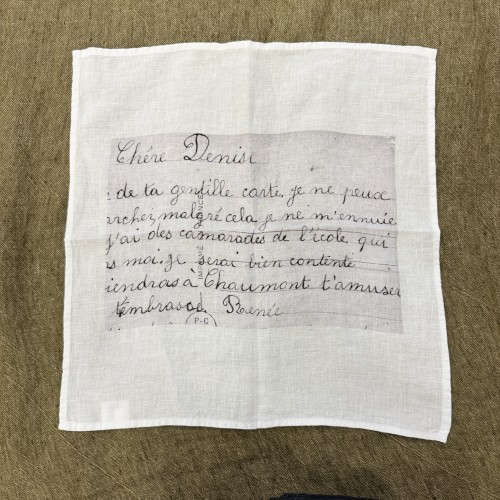 Chére Denise
de ta gentille carte. je ne peux
archer, malgré cela, je ne m'ennuie
j'ai des camarades de l'école qui
s moi. Je serai bien contente
iendras à Chaumont t'amuser
t'embrasse. Renée
P-C